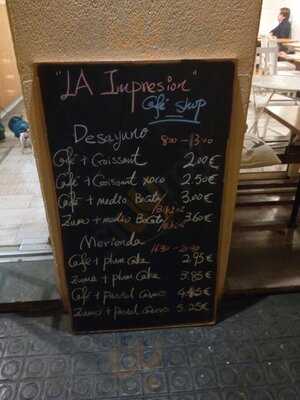 "LA Impresion"
Café Shop
Desayuno 8:00 - 13:00
Café + Croissant 2.00€
Café + Croisant xoco 2.50€
Café + medio Bocata 3.00€
Zumo + medio Bocata 3.60€
Merienda
Café + plum cake 2.95€
Zumo + plum cake 3.85€
Café + pastel casero
Zumo + pastel casero 5.25€